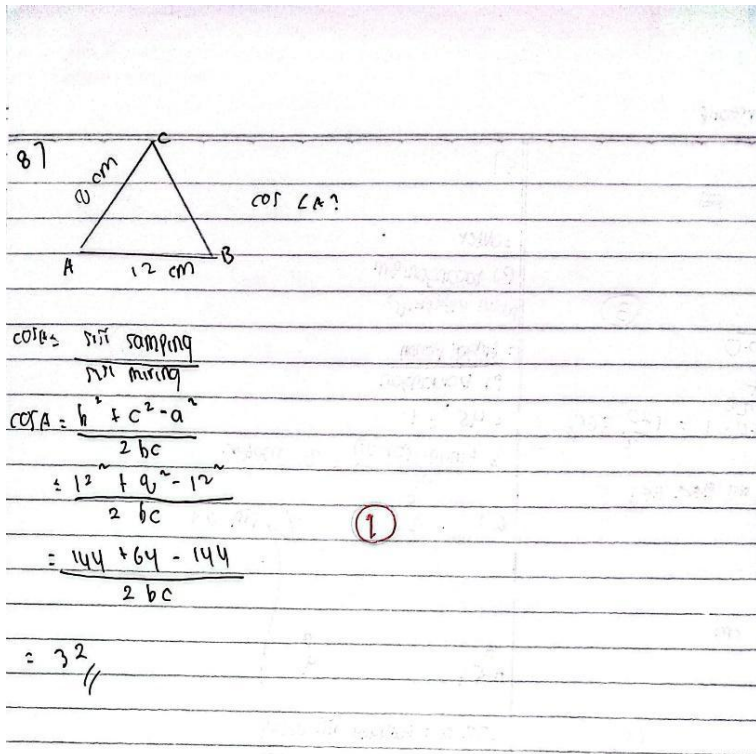 8)
C
8 cm
cos ∠A?
A
12 cm
B
cos A = sisi samping
sisi miring
cos A = b² + c² - a²
2 bc
= 12² + 8² - 12²
2 bc
1
= 144 + 64 - 144
2 bc
= 32 //